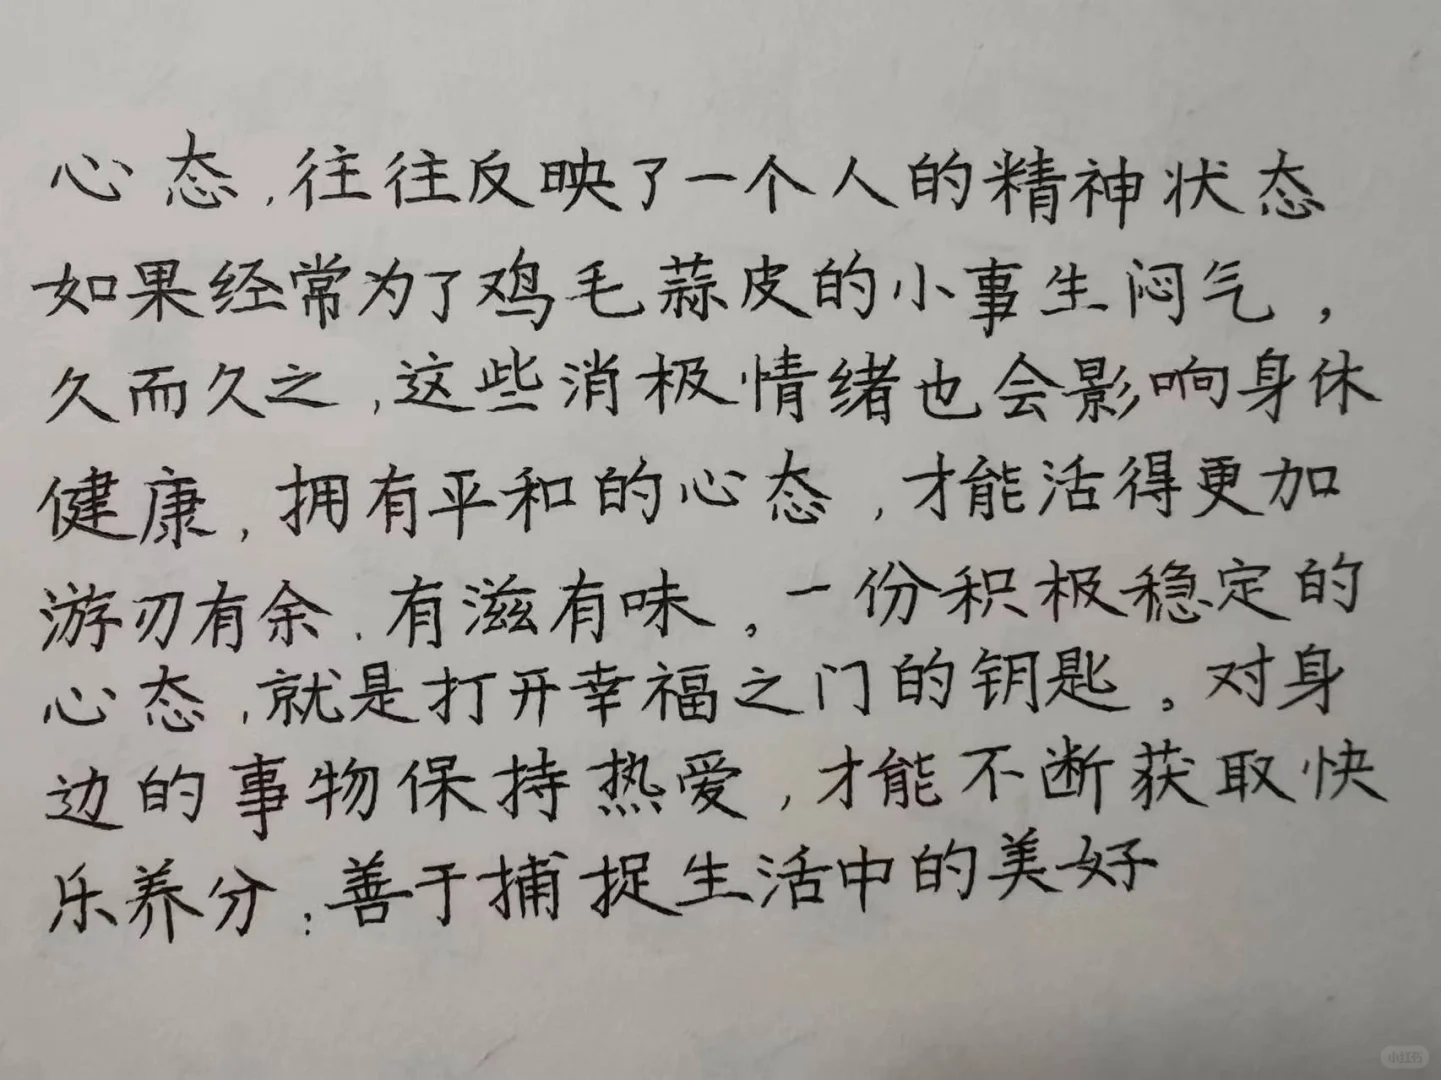 心态，往往反映了一个人的精神状态
如果经常为了鸡毛蒜皮的小事生闷气，
久而久之，这些消极情绪也会影响身休
健康，拥有平和的心态，才能活得更加
游刃有余．有滋有味。一份积极稳定的
心态，就是打开幸福之门的钥匙。对身
边的事物保持热爱，才能不断获取快
乐养分；善于捕捉生活中的美好